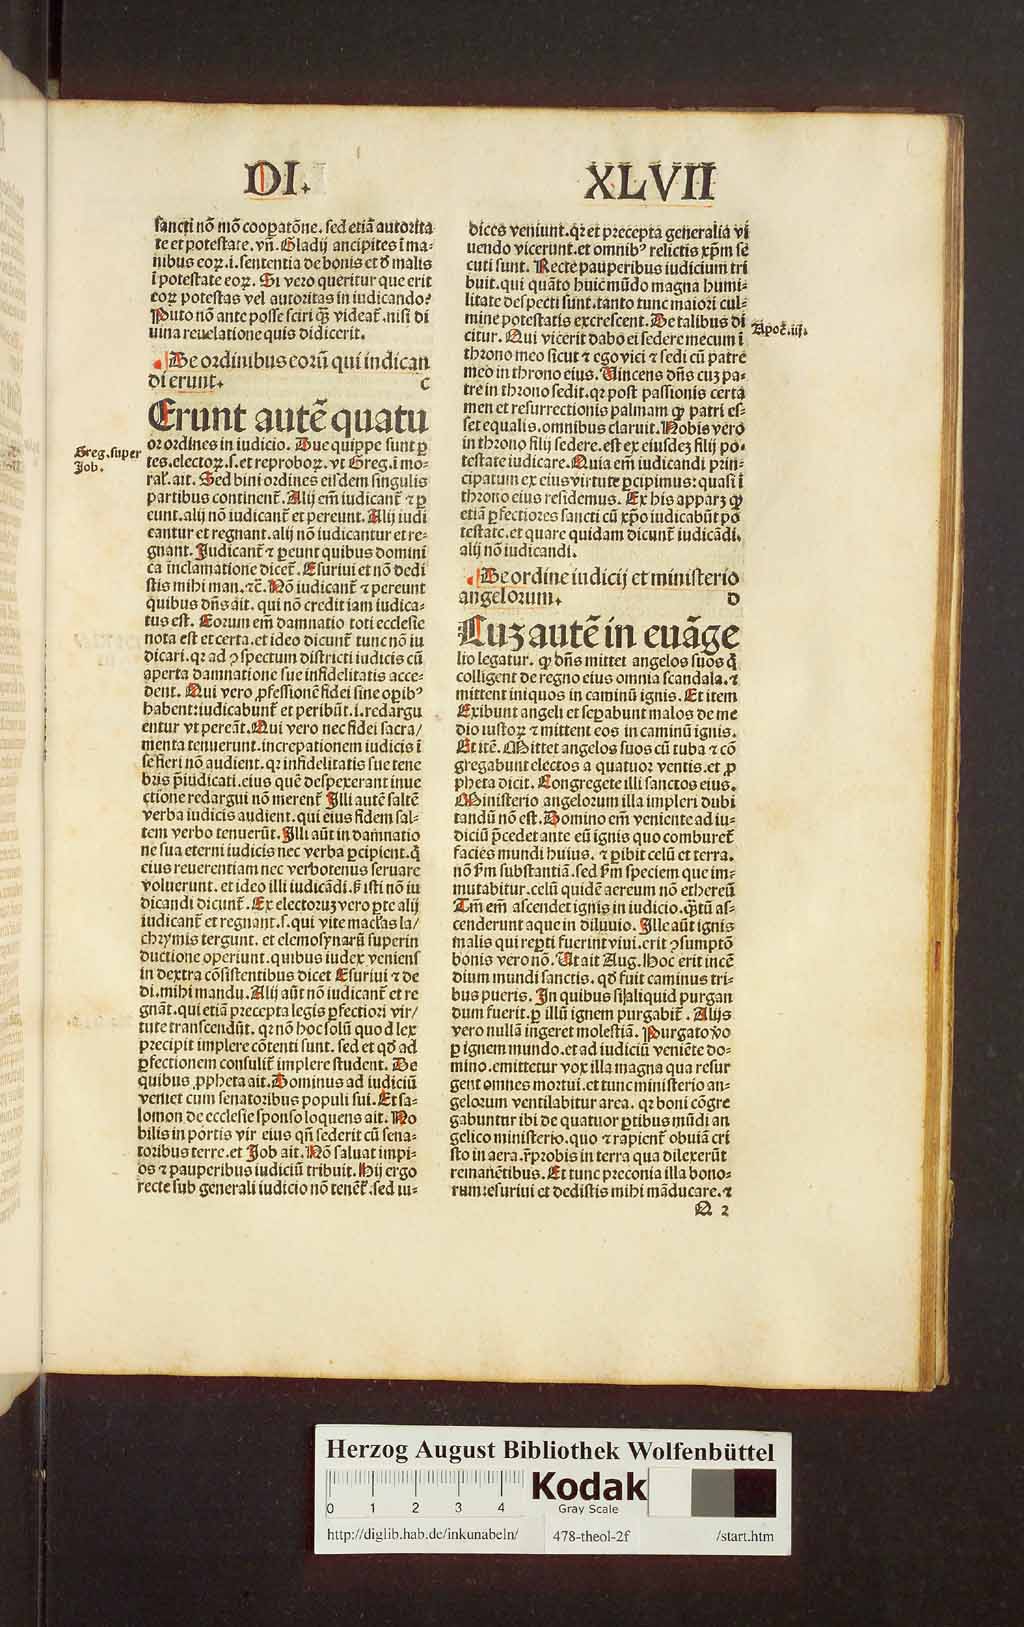 DI. XLVII
sancti nō mō cooꝑatōne. sed etiā autorita
te et potestate. vñ. Gladij ancipites ī ma⸗
nibus eoꝝ. i. sententia de bonis et đ malis
ī potestate eoꝝ. Si vero queritur que erit
eoꝝ potestas vel autoritas in iudicando?
Puto nō ante posse sciri qȝ videat̄. nisi di
uina reuelatione quis didicerit.
De ordinibus eorū qui iudican
di erunt. C
Erunt autē quatu
or ordines in iudicio. Due quippe sunt ꝑ
tes. electoꝝ. s. et reproboꝝ. vt Greg. ī mo⸗
ral̄. ait. Sed bini ordines eisdem singulis
partibus continent̄. Alij em̄ iudicant̄ ⁊ ꝑ
eunt. alij nō iudicant̄ et pereunt. Alij iudi
cantur et regnant. alij nō iudicantur et re⸗
gnant. Judicant̄ ⁊ ꝑeunt quibus domini
ca inclamatione dicet̄. Esuriui et nō dedi
stis mihi man. ⁊c̄. Nō iudicant̄ ⁊ pereunt
quibus dn̄s ait. qui nō credit iam iudica⸗
tus est. Eorum em̄ damnatio toti ecclesie
nota est et certa. et ideo dicunt̄ tunc nō iu
dicari. qꝛ ad ꝯspectum districti iudicis cū
aperta damnatione sue infidelitatis acce⸗
dent. Qui vero ꝓfessionē fidei sine oꝑibꝰ
habent: iudicabunt̄ et peribūt. i. redargu
entur vt pereāt. Qui vero nec fidei sacra/
menta tenuerunt. increpationem iudicis ī
se fieri nō audient. qꝛ infidelitatis sue tene
bris p̄iudicati. eius quē despexerant inue
ctione redargui nō merent̄ Illi autē saltē
verba iudicis audient. qui eius fidem sal⸗
tem verbo tenuerūt. Illi aūt in damnatio
ne sua eterni iudicis nec verba ꝑcipient. q̄
eius reuerentiam nec verbotenus seruare
voluerunt. et ideo illi iudicādi. sȝ isti nō iu
dicandi dicunt̄. Ex electoruȝ vero ꝑte alij
iudicant̄ et regnant. s. qui vite macl̄as la/
chrymis tergunt. et elemosynarū superin
ductione operiunt. quibus iudex veniens
in dextra cōsistentibus dicet Esuriui ⁊ de
di. mihi mandu. Alij aūt nō iudicant̄ et re
gnāt. qui etiā precepta legis ꝑfectiori vir/
tute transcendūt. qꝛ nō hoc solū quod lex
precipit implere cōtenti sunt. sed et qđ ad
ꝑfectionem consulit̄ implere student. De
quibus ꝓpheta ait. Dominus ad iudiciū
veniet cum senatoribus populi sui. Et sa⸗
lomon de ecclesie sponso loquens ait. No
bilis in portis vir eius qn̄ sederit cū sena⸗
toribus terre. et Job ait. Nō saluat impi⸗
os ⁊ pauperibus iudiciū tribuit. Hij ergo
recte sub generali iudicio nō tenēt̄. sed iu⸗
Greg. super
Job.
dices veniunt. qꝛ et precepta generalia vi
uendo vicerunt. et omnibꝰ relictis xp̄m se
cuti sunt. Recte pauperibus iudicium tri
buit. qui quāto huic mūdo magna humi⸗
litate despecti sunt. tanto tunc maiori cul⸗
mine potestatis excrescent. De talibus di
citur. Qui vicerit dabo ei sedere mecum ī
throno meo sicut ⁊ ego vici ⁊ sedi cū patre
meo in throno eius. Vincens dn̄s cuȝ pa⸗
tre in throno sedit. qꝛ post passionis certa
men et resurrectionis palmam ꝙ patri es⸗
set equalis. omnibus claruit. Nobis vero
in throno filij sedere. est ex eiusdeȝ filij po⸗
testate iudicare. Quia em̄ iudicandi prin⸗
cipatum ex eius virtute ꝑcipimus: quasi ī
throno eius residemus. Ex his apparȝ ꝙ
etiā ꝑfectiores sancti cū xp̄o iudicabūt po
testate. et quare quidam dicunt̄ iudicādi.
alij nō iudicandi.
De ordine iudicij et ministerio
angelorum. D
Cuȝ autē in euāge
lio legatur. ꝙ dn̄s mittet angelos suos q̄
colligent de regno eius omnia scandala. ⁊
mittent iniquos in caminū ignis. Et item
Exibunt angeli et seꝑabunt malos de me
dio iustoꝝ ⁊ mittent eos in caminū ignis.
Et itē. Mittet angelos suos cū tuba ⁊ cō
gregabunt electos a quatuor ventis. et ꝓ
pheta dicit. Congregete illi sanctos eius.
Ministerio angelorum illa impleri dubi
tandū nō est. Domino em̄ veniente ad iu⸗
diciū p̄cedet ante eū ignis quo comburet̄
facies mundi huius. ⁊ ꝑibit celū et terra.
nō s̄m substantiā. sed s̄m speciem que im⸗
mutabitur. celū quidē aereum nō ethereū
Tm̄ em̄ ascendet ignis in iudicio. qȝtū as⸗
cenderunt aque in diluuio. Ille aūt ignis
malis qui reꝑti fuerint viui. erit ꝯsumptō
bonis vero nō. Ut ait Aug. Hoc erit incē
dium mundi sanctis. qđ fuit caminus tri⸗
bus pueris. In quibus si aliquid purgan
dum fuerit. ꝑ illū ignem purgabit̄. Alijs
vero nullā ingeret molestiā. Purgato v̄o
ꝑ ignem mundo. et ad iudiciū veniēte do⸗
mino. emittetur vox illa magna qua resur
gent omnes mortui. et tunc ministerio an⸗
gelorum ventilabitur area. qꝛ boni cōgre
gabuntur ibi de quatuor ꝑtibus mūdi an
gelico ministerio. quo ⁊ rapient̄ obuiā cri
sto in aera. r̄probis in terra qua dilexerūt
remanētibus. Et tunc preconia illa bono⸗
rum: esuriui et dedistis mihi māducare. ⁊
Q 2
Apoc̄. iij.
Herzog August Bibliothek Wolfenbüttel
0 1 2 3 4
Kodak
Gray Scale
http://diglib.hab.de/inkunabeln/ 478-theol-2f /start.htm